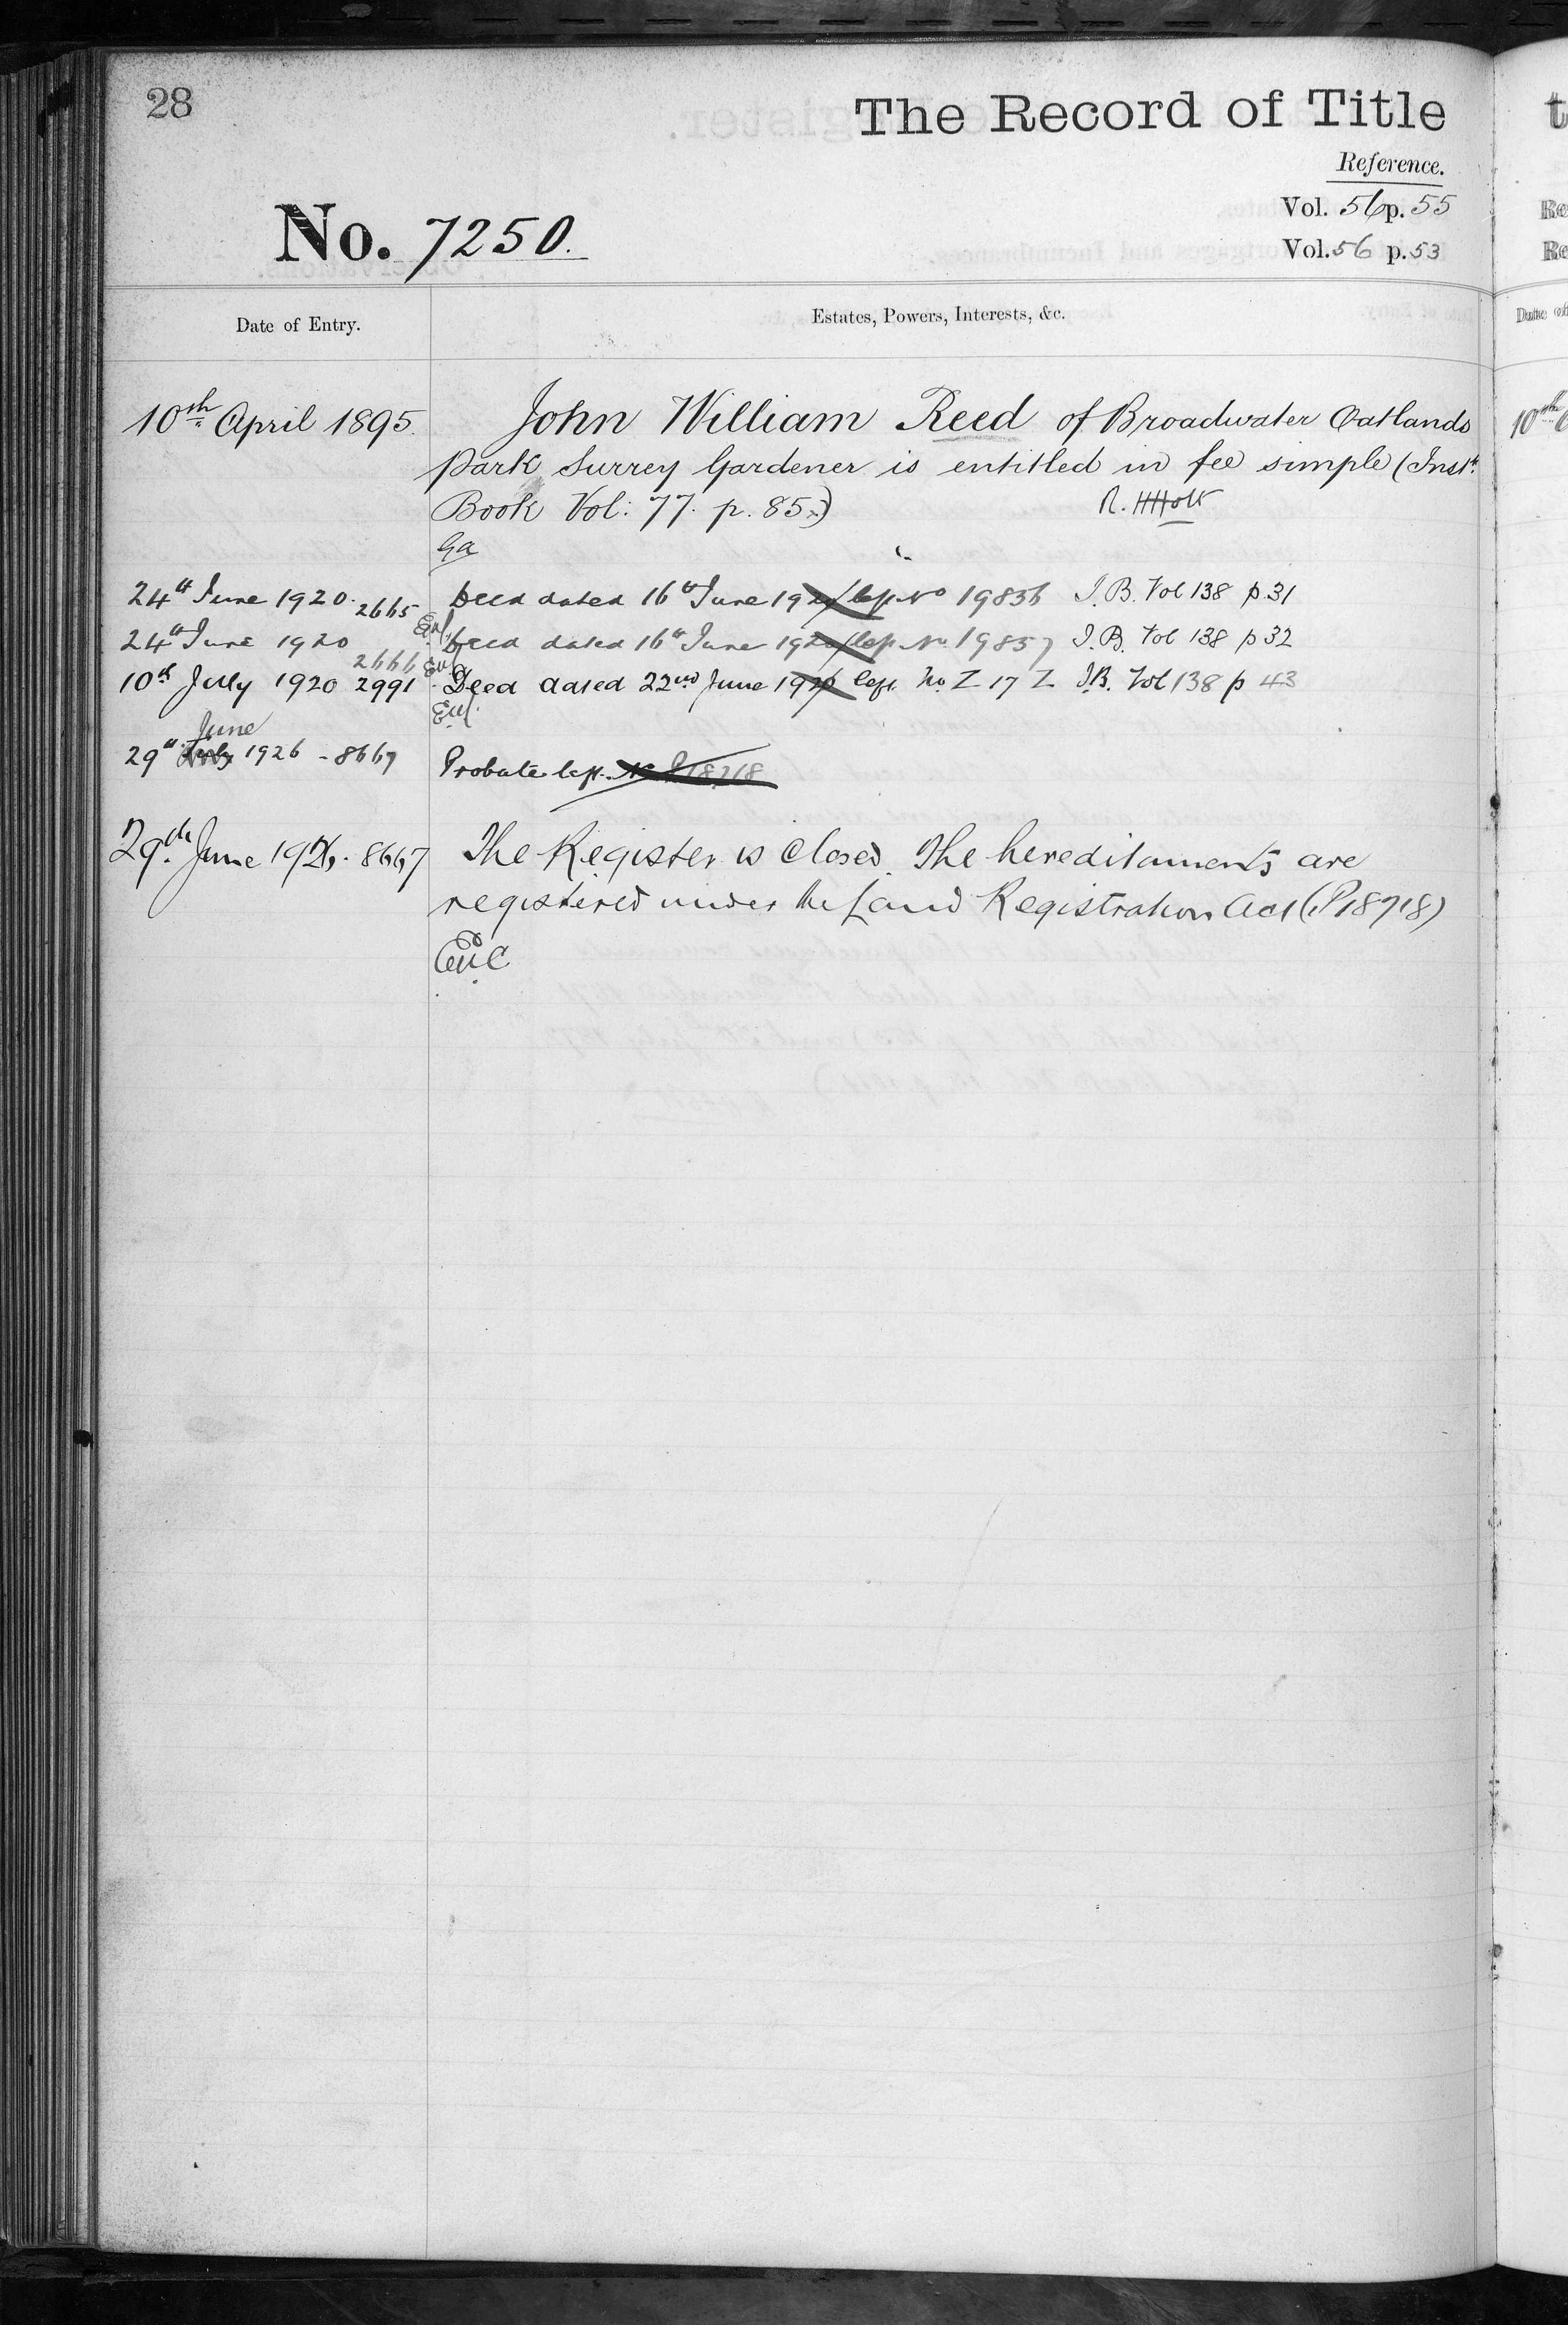 28
The Record of Title
Reference.
Vol. 56 p. 55
No. 7250.
Vol. 56 p. 53
Date of Entry.
Estates, Powers, Interests, &c.
10th April 1895. John William Reed of Broadwater Oatlands
Park Surrey Gardener is entitled in fee simple (Inst.
Book Vol: 77. p. 85.)
R. H Holt
Ga
24th June 1920. 2665 Deed dated 16th June 1920 dep. No 19836 I.B. Vol 138 p 31
24th June 1920 2666 Deed dated 16th June 1920 dep. No. 19837 I.B. Vol 138 p 32
10th July 1920 2991 Deed dated 22nd June 1920 dep. No. Z 17 Z I.B. Vol 138 p 43
June
29th July 1926 - 8667 Probate dep. No. P18718
29th June 1926. 8667 The Register is closed. The hereditaments are
registered under the Land Registration Act (P18718)